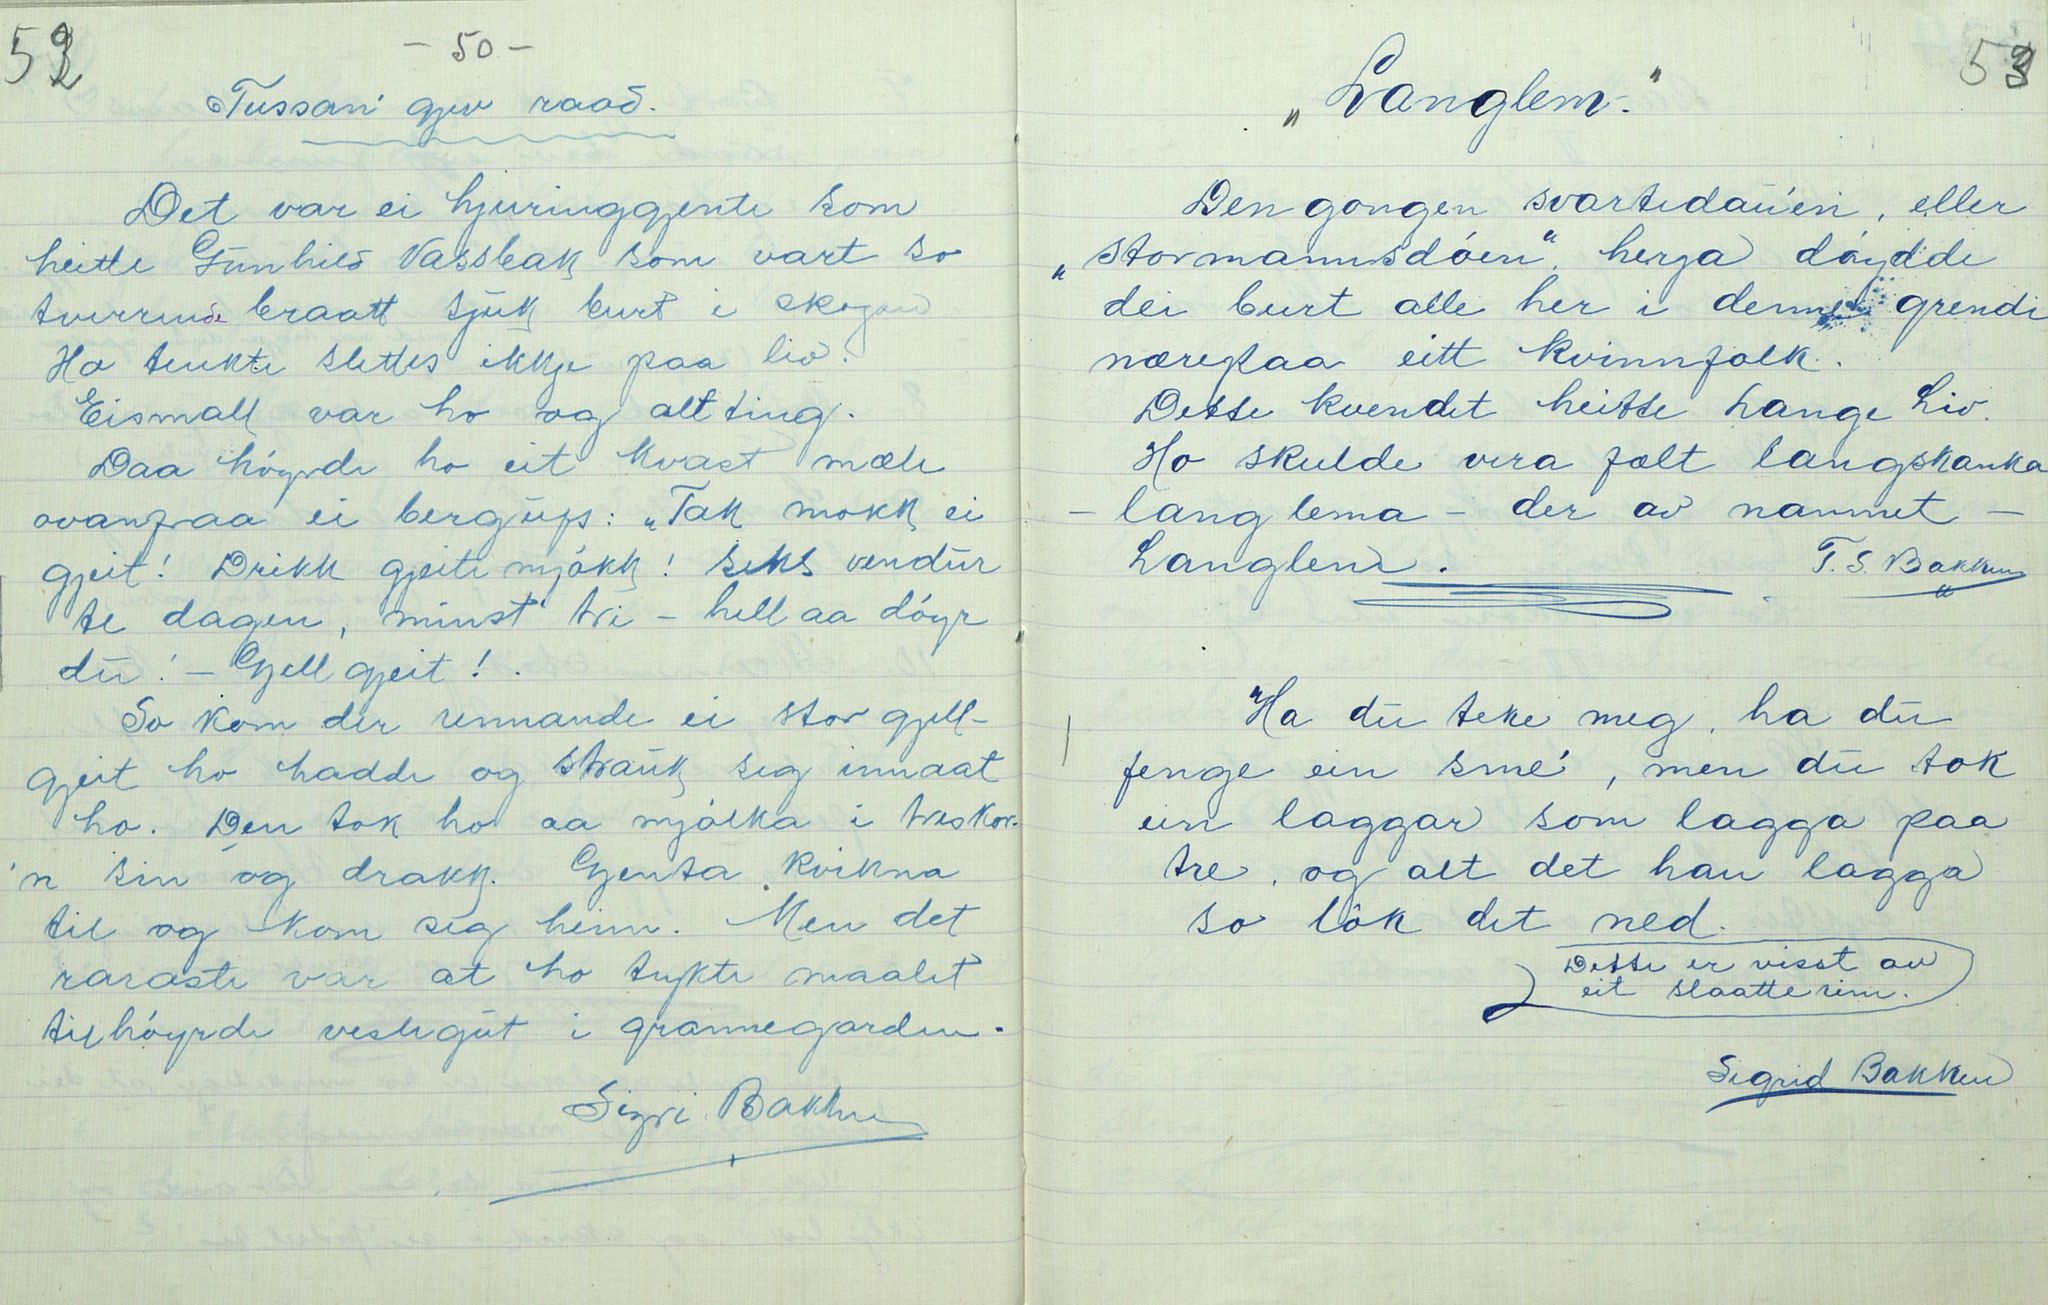 52
- 50 -
Tussan' gjev raad.
Det var ei hjuringgjente som
heitte Gunhild Vassbakk som vart so
tverrende braatt sjuk burt i skogen
Ho tenkte slettes ikkje paa liv.
Eismall var ho og alt ting.
Daa höyrde ho eit kvast mæle
ovanfraa ei bergufs: „Tak mokk ei
gjeit! Drikk gjeitemjökk! Seks vendur
te dagen, minst tri - hell aa döyr
du! - Gjell gjeit!
So kom der rennande ei stor gjell-
gjeit ho hadde og strauk seg innaat
ho. Den tok ho aa mjölka i treskor-
'n sin og drakk. Gjenta kvikna
til og kom seg heim. Men det
raraste var at ho tykte maalet
tilhöyrde veslegut i grannegarden.
Sigri Bakken
53
„Langlem."
Den gongen svartedau'en, eller
„stormannsdöen", herja döydde
dei burt alle her i denne grendi
nærepaa eitt kvinnfolk.
Dette kvendet heitte Lange Liv.
Ho skulde vera fælt langskanka
- langlema - der av namnet -
Langlem.
T. S. Bakken
Ha du teke meg, ha du
fenge ein sme', men du tok
ein laggar som lagga paa
tre, og alt det han lagga
so lök det ned.
Dette er visst av
eit slaatterim.
Sigrid Bakken